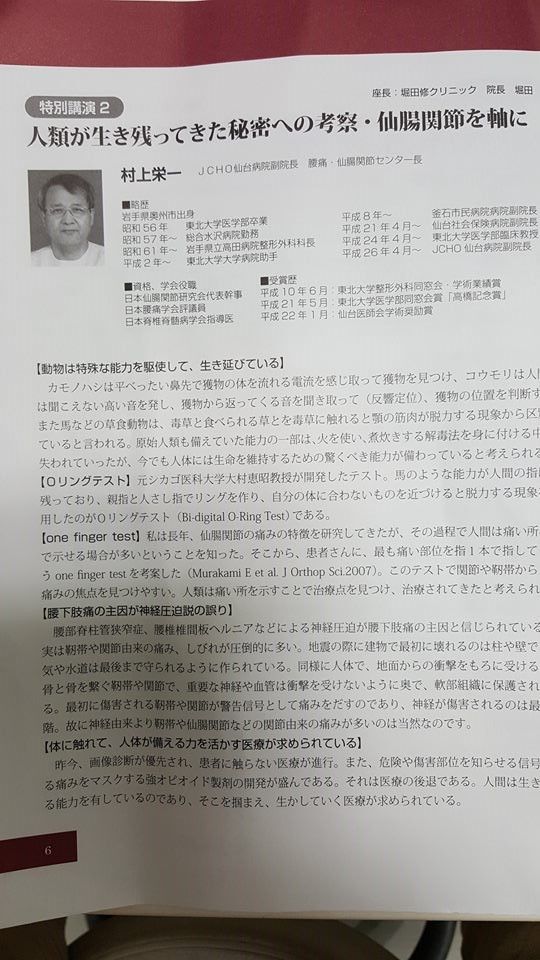 特別講演2
座長：堀田修クリニック 院長 堀田
人類が生き残ってきた秘密への考察・仙腸関節を軸に
村上栄一 JCHO仙台病院副院長 腰痛・仙腸関節センター長
■略歴
岩手県奥州市出身
昭和56年 東北大学医学部卒業
昭和57年～ 総合水沢病院勤務
昭和61年～ 岩手県立高田病院整形外科科長
平成2年～ 東北大学大学病院助手
平成8年～ 釜石市民病院病院副院長
平成21年4月～ 仙台社会保険病院副院長
平成24年4月～ 東北大学医学部臨床教授
平成26年4月～ JCHO仙台病院副院長
■資格、学会役職
日本仙腸関節研究会代表幹事
日本腰痛学会評議員
日本脊椎脊髄病学会指導医
■受賞歴
平成10年6月：東北大学整形外科同窓会・学術業績賞
平成21年5月：東北大学医学部同窓会賞「高橋記念賞」
平成22年1月：仙台医師会学術奨励賞
【動物は特殊な能力を駆使して、生き延びている】
カモノハシは平べったい鼻先で獲物の体を流れる電流を感じ取って獲物を見つけ、コウモリは人間
は聞こえない高い音を発し、獲物から返ってくる音を聞き取って（反響定位）、獲物の位置を判断す
また馬などの草食動物は、毒草と食べられる草とを毒草に触れると顎の筋肉が脱力する現象から区
ていると言われる。原始人類も備えていた能力の一部は、火を使い、煮炊きする解毒法を身に付ける中
失われていったが、今でも人体には生命を維持するための驚くべき能力が備わっていると考えられる
【Oリングテスト】元シカゴ医科大学大村恵昭教授が開発したテスト。馬のような能力が人間の指
残っており、親指と人さし指でリングを作り、自分の体に合わないものを近づけると脱力する現象
用したのがOリングテスト（Bi-digital O-Ring Test）である。
【one finger test】私は長年、仙腸関節の痛みの特徴を研究してきたが、その過程で人間は痛い所
で示せる場合が多いということを知った。そこから、患者さんに、最も痛い部位を指1本で指して
う one finger test を考案した（Murakami E et al. J Orthop Sci.2007）。このテストで関節や靭帯から
痛みの焦点を見つけやすい。人類は痛い所を示すことで治療点を見つけ、治療されてきたと考えられ
【腰下肢痛の主因が神経圧迫説の誤り】
腰部脊柱管狭窄症、腰椎椎間板ヘルニアなどによる神経圧迫が腰下肢痛の主因と信じられている
実は靭帯や関節由来の痛み、しびれが圧倒的に多い。地震の際に建物で最初に壊れるのは柱や壁で
気や水道は最後まで守られるように作られている。同様に人体で、地面からの衝撃をもろに受ける
骨と骨を繋ぐ靭帯や関節で、重要な神経や血管は衝撃を受けないように奥で、軟部組織に保護され
る。最初に傷害される靭帯や関節が警告信号として痛みをだすのであり、神経が傷害されるのは最
階。故に神経由来より靭帯や仙腸関節などの関節由来の痛みが多いのは当然なのです。
【体に触れて、人体が備える力を活かす医療が求められている】
昨今、画像診断が優先され、患者に触らない医療が進行。また、危険や傷害部位を知らせる信号
る痛みをマスクする強オピオイド製剤の開発が盛んである。それは医療の後退である。人間は生き
る能力を有しているのであり、そこを掴まえ、生かしていく医療が求められている。
6